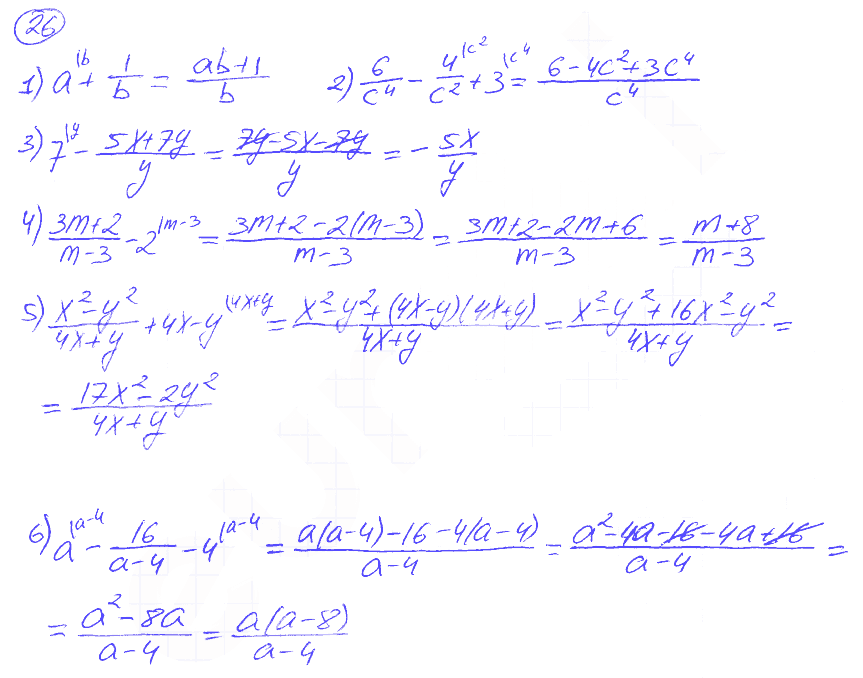 26
1) a^{|b} + 1/b = (ab+1)/b    2) 6/c⁴ - 4^{|c²}/c² + 3^{|c⁴} = (6-4c²+3c⁴)/c⁴
3) 7^{|y} - (5x+7y)/y = (7y-5x-7y)/y = -5x/y
4) (3m+2)/(m-3) - 2^{|m-3} = (3m+2-2(m-3))/(m-3) = (3m+2-2m+6)/(m-3) = (m+8)/(m-3)
5) (x²-y²)/(4x+y) + 4x-y^{|4x+y} = (x²-y²+(4x-y)(4x+y))/(4x+y) = (x²-y²+16x²-y²)/(4x+y) =
= (17x²-2y²)/(4x+y)
6) a^{|a-4} - 16/(a-4) - 4^{|a-4} = (a(a-4)-16-4(a-4))/(a-4) = (a²-4a-16-4a+16)/(a-4) =
= (a²-8a)/(a-4) = a(a-8)/(a-4)